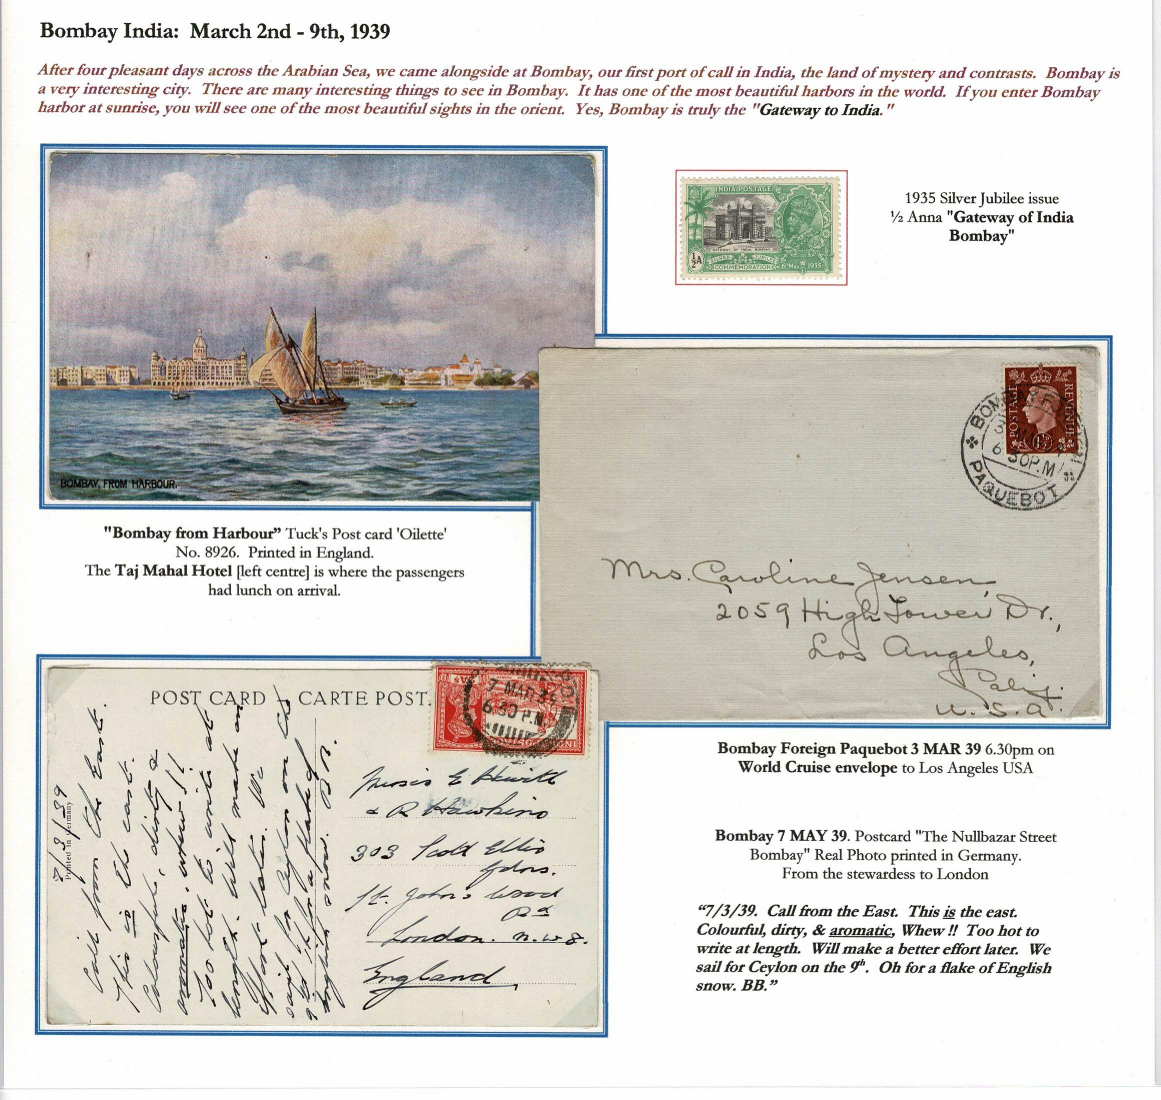 Bombay India: March 2nd - 9th, 1939
After four pleasant days across the Arabian Sea, we came alongside at Bombay, our first port of call in India, the land of mystery and contrasts. Bombay is
a very interesting city. There are many interesting things to see in Bombay. It has one of the most beautiful harbors in the world. If you enter Bombay
harbor at sunrise, you will see one of the most beautiful sights in the orient. Yes, Bombay is truly the "Gateway to India."
BOMBAY, FROM HARBOUR.
INDIA POSTAGE
GATEWAY OF INDIA BOMBAY
½A
SILVER JUBILEE
COMMEMORATION 6 MAY 1935
1935 Silver Jubilee issue
½ Anna "Gateway of India
Bombay"
"Bombay from Harbour” Tuck's Post card 'Oilette'
No. 8926. Printed in England.
The Taj Mahal Hotel [left centre] is where the passengers
had lunch on arrival.
POSTAGE REVENUE
BOMBAY
6.30P.M
PAQUEBOT
Mrs. Caroline Jensen,
2059 High Tower Dr.,
Los Angeles,
Calif.
U.S.A.
Bombay Foreign Paquebot 3 MAR 39 6.30pm on
World Cruise envelope to Los Angeles USA
POST CARD - CARTE POST.
7 MAR 39
6.30 P.M.
Printed in Germany
7/3/39
Call from the East.
This is the east.
Colourful, dirty &
aromatic, whew !!
Too hot to write at
length. Will make a
effort later. We
sail for Ceylon on the
9th. Oh for a flake of
English snow. BB.
Misses E Hewitt
& R Hawkins
303 Scott Ellis
Gdns.
St. Johns Wood
Rd
London. N.W.8.
England
Bombay 7 MAY 39. Postcard "The Nullbazar Street
Bombay" Real Photo printed in Germany.
From the stewardess to London
“7/3/39. Call from the East. This is the east.
Colourful, dirty, & aromatic, Whew !! Too hot to
write at length. Will make a better effort later. We
sail for Ceylon on the 9th. Oh for a flake of English
snow. BB.”